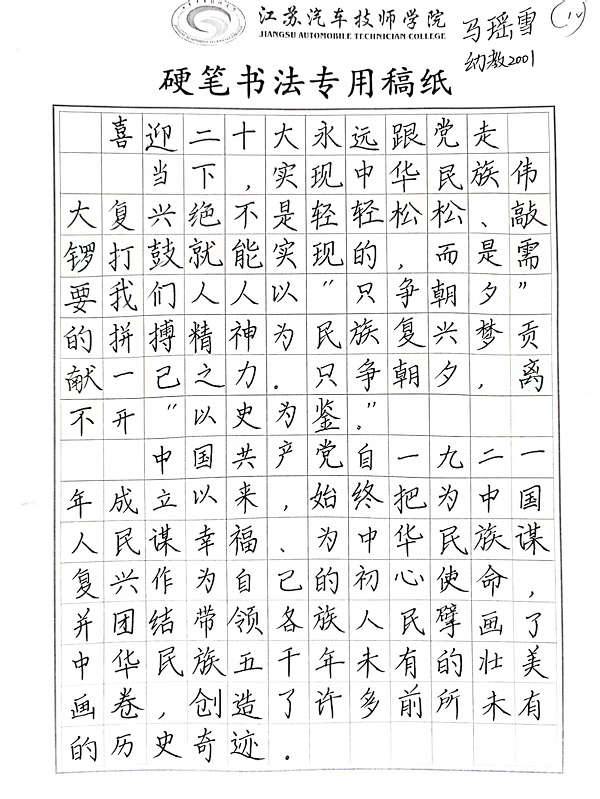 江苏汽车技师学院
JIANGSU AUTOMOBILE TECHNICIAN COLLEGE
马瑶雪
幼教2001
硬笔书法专用稿纸
喜迎二十大永远跟党走
当下，实现中华民族伟
大复兴绝不是轻轻松松、敲
锣打鼓就能实现的，而是需
要我们人人以“只争朝夕”
的拼搏精神为民族复兴梦贡
献一己之力。只争朝夕，离
不开“以史为鉴。”
中国共产党自一九二一
年成立以来，始终把为中国
人民谋幸福、为中华民族谋
复兴作为自己的初心使命，
并团结带领各族人民擘画了
中华民族五千年未有的壮美
画卷，创造了许多前所未有
的历史奇迹。